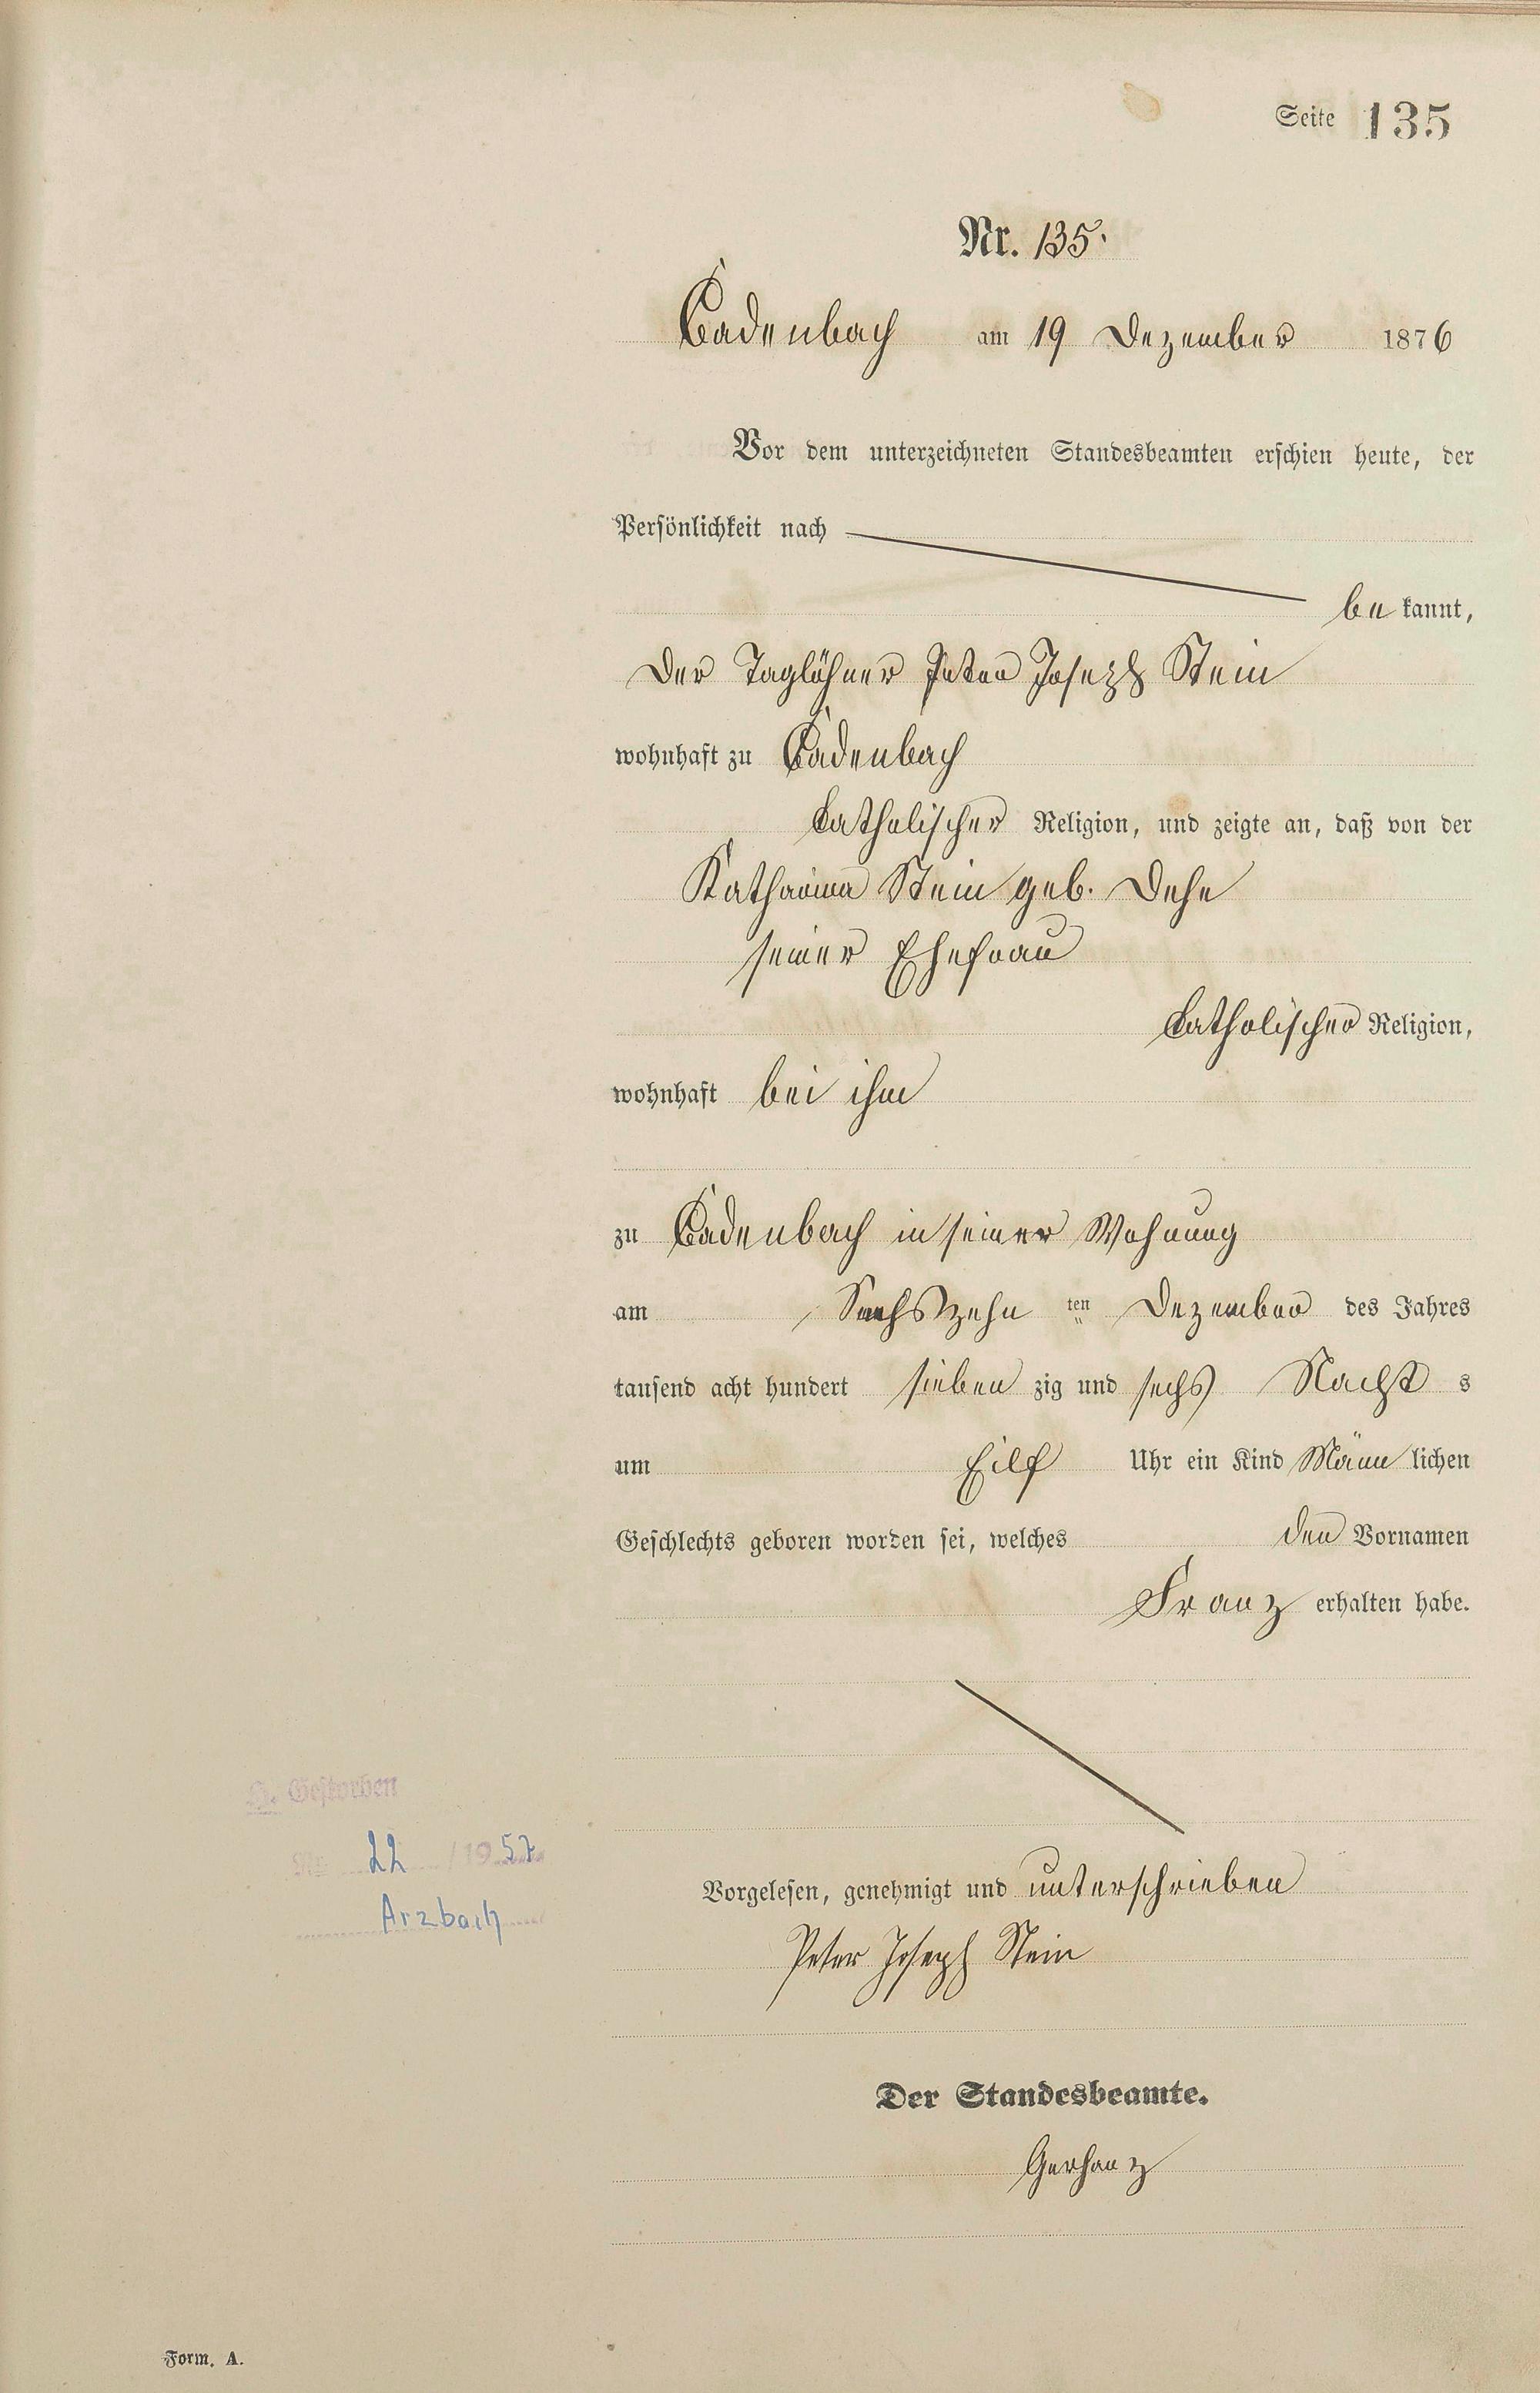 Seite 135
Nr. 135.
Cadenbach am 19 Dezember 1876
Vor dem unterzeichneten Standesbeamten erschien heute, der
Persönlichkeit nach
be kannt,
Der Taglöhner Peter Joseph Stein
wohnhaft zu Cadenbach
katholischer Religion, und zeigte an, daß von der
Katharina Stein geb. Dehe
seiner Ehefrau
katholischer Religion,
wohnhaft bei ihm
zu Cadenbach in seiner Wohnung
am Sechszehn ten Dezember des Jahres
tausend acht hundert sieben zig und sechs Nacht s
um Eilf Uhr ein Kind Männ lichen
Geschlechts geboren worden sei, welches den Vornamen
Franz erhalten habe.
H. Gestorben
Nr. 22 / 1957
Arzbach
Vorgelesen, genehmigt und unterschrieben
Peter Joseph Stein
Der Standesbeamte.
Gerhanz
Form. A.